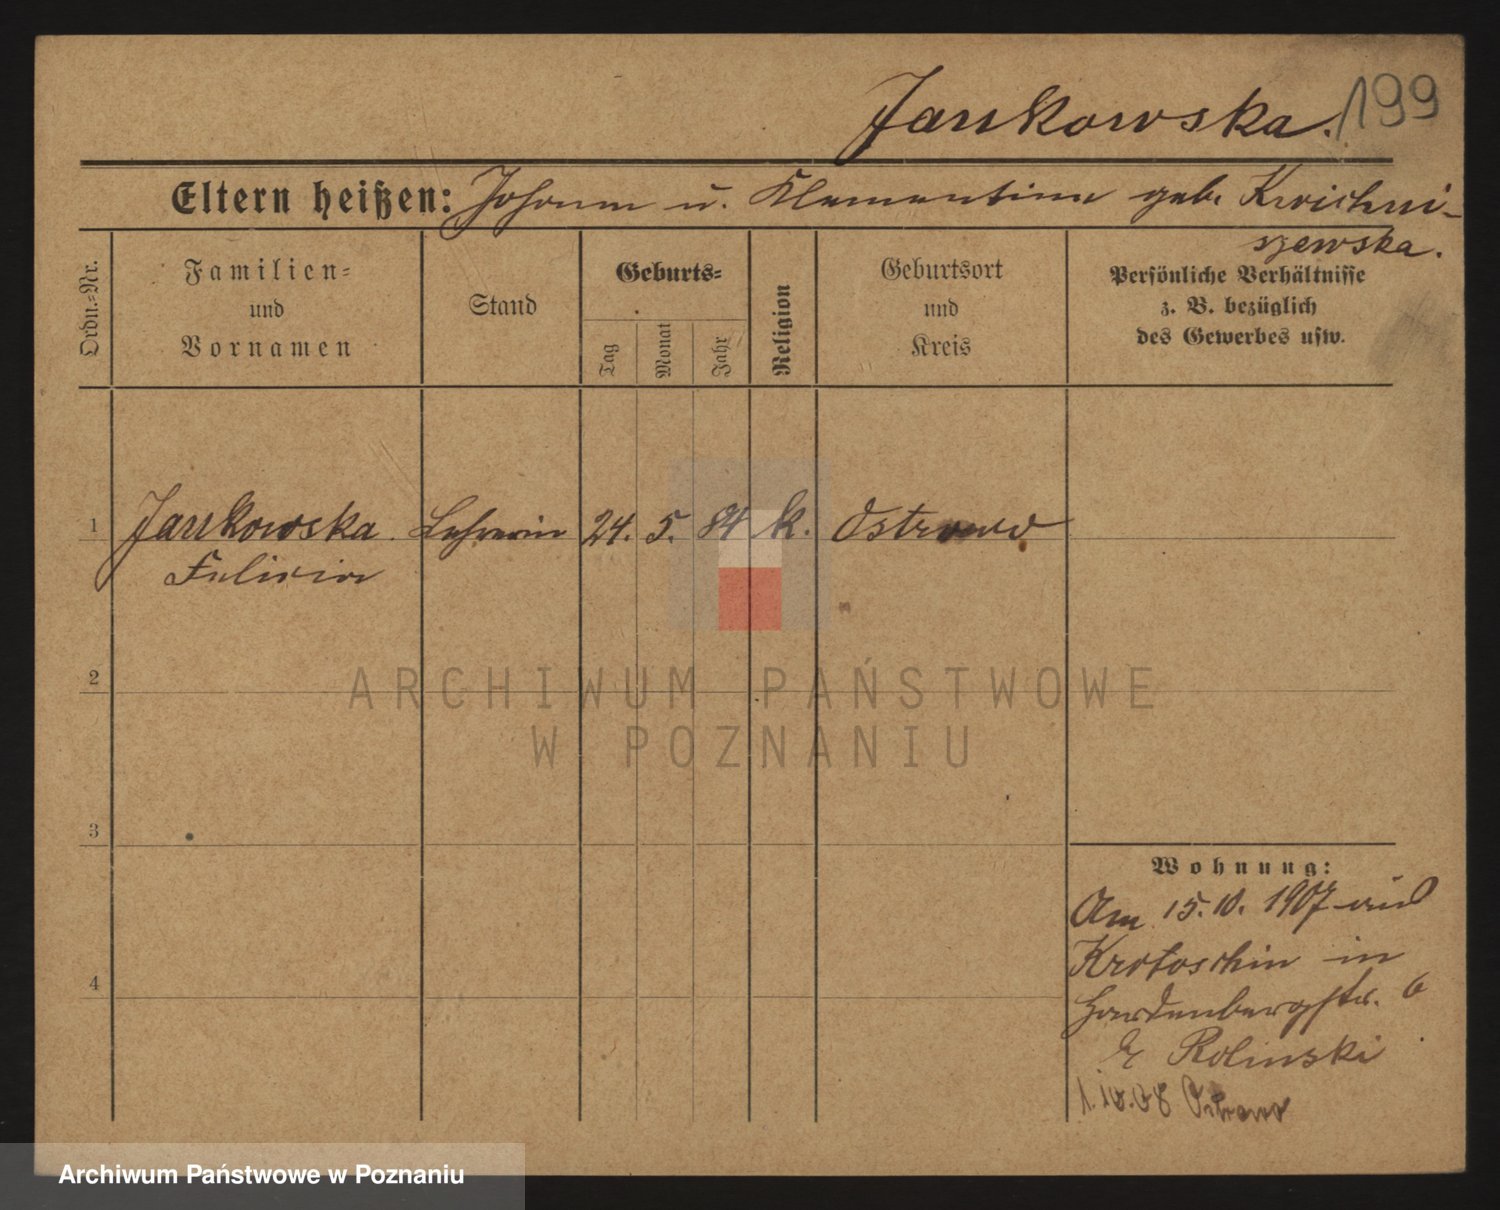 Jankowska. 199
Eltern heißen: Johann u. Klementine geb. Kwichni-
szewska.
Ordn.=Nr.
Familien=
und
Vornamen
Stand
Geburts=
Tag
Monat
Jahr
Religion
Geburtsort
und
Kreis
Persönliche Verhältnisse
z. B. bezüglich
des Gewerbes usw.
1 Jankowska Lehrerin 24. 5. 84 k. Ostrowo
Felicia
2
ARCHIWUM PAŃSTWOWE
W POZNANIU
3
4
Wohnung:
Am 15. 10. 1907 aus
Krotoschin in
Hardenbergstr. 6
Rolinski
1.10.08 Ostrowo
Archiwum Państwowe w Poznaniu